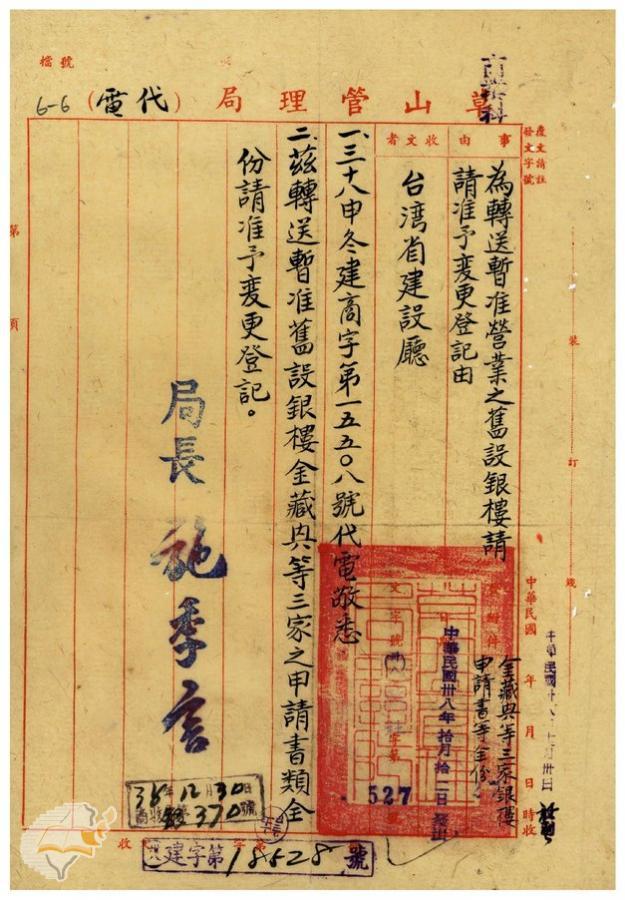 檔號
6-6
草山管理局(代電)
覆文請註
發文字號
事由
為轉送暫准營業之舊設銀樓請
請准予变更登記由
收文者
台湾省建設廳
一、三十八申冬建商字第一五五〇八號代電敬悉
二、茲轉送暫准舊設銀樓金藏興等三家之申請書類全
份請准予变更登記。
局長 施季言
金藏興等三家銀樓
申請書等全份
中華民國卅八年拾月拾二日
527
中華民國 年 月 日 時收
裝
訂
線
第 頁
38年12月30日
370號
建字第18528號
收